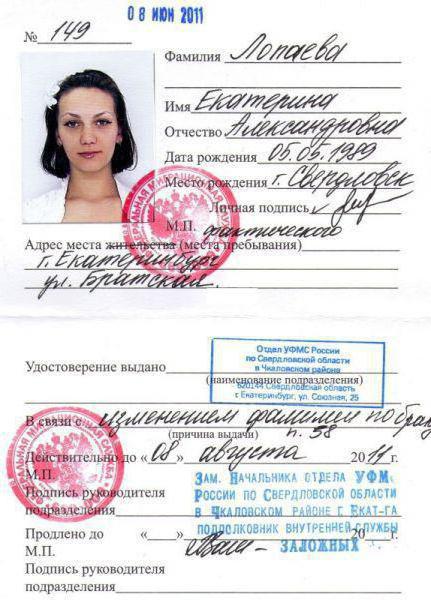 08 ИЮН 2011
№ 149
Фамилия Лопаева
Имя Екатерина
Отчество Александровна
Дата рождения 05.05.1989
Место рождения г. Свердловск
Личная подпись
М.П. фактического
Адрес места жительства (места пребывания)
г. Екатеринбург
ул. Братская
Отдел УФМС России
по Свердловской области
в Чкаловском районе
Удостоверение выдано
(наименование подразделения)
620144 Свердловская область
г. Екатеринбург, ул. Союзная, 25
В связи с изменением фамилии по
(причина выдачи) п. 58
Действительно до «08» августа 2011 г.
М.П.
Зам. Начальника отдела УФМ
Подпись руководителя
России по Свердловской области
подразделения
в Чкаловском районе г. Екат-га
подполковник внутренней службы
Продлено до «___» 20
М.П.
– Заложных
Подпись руководителя
подразделения